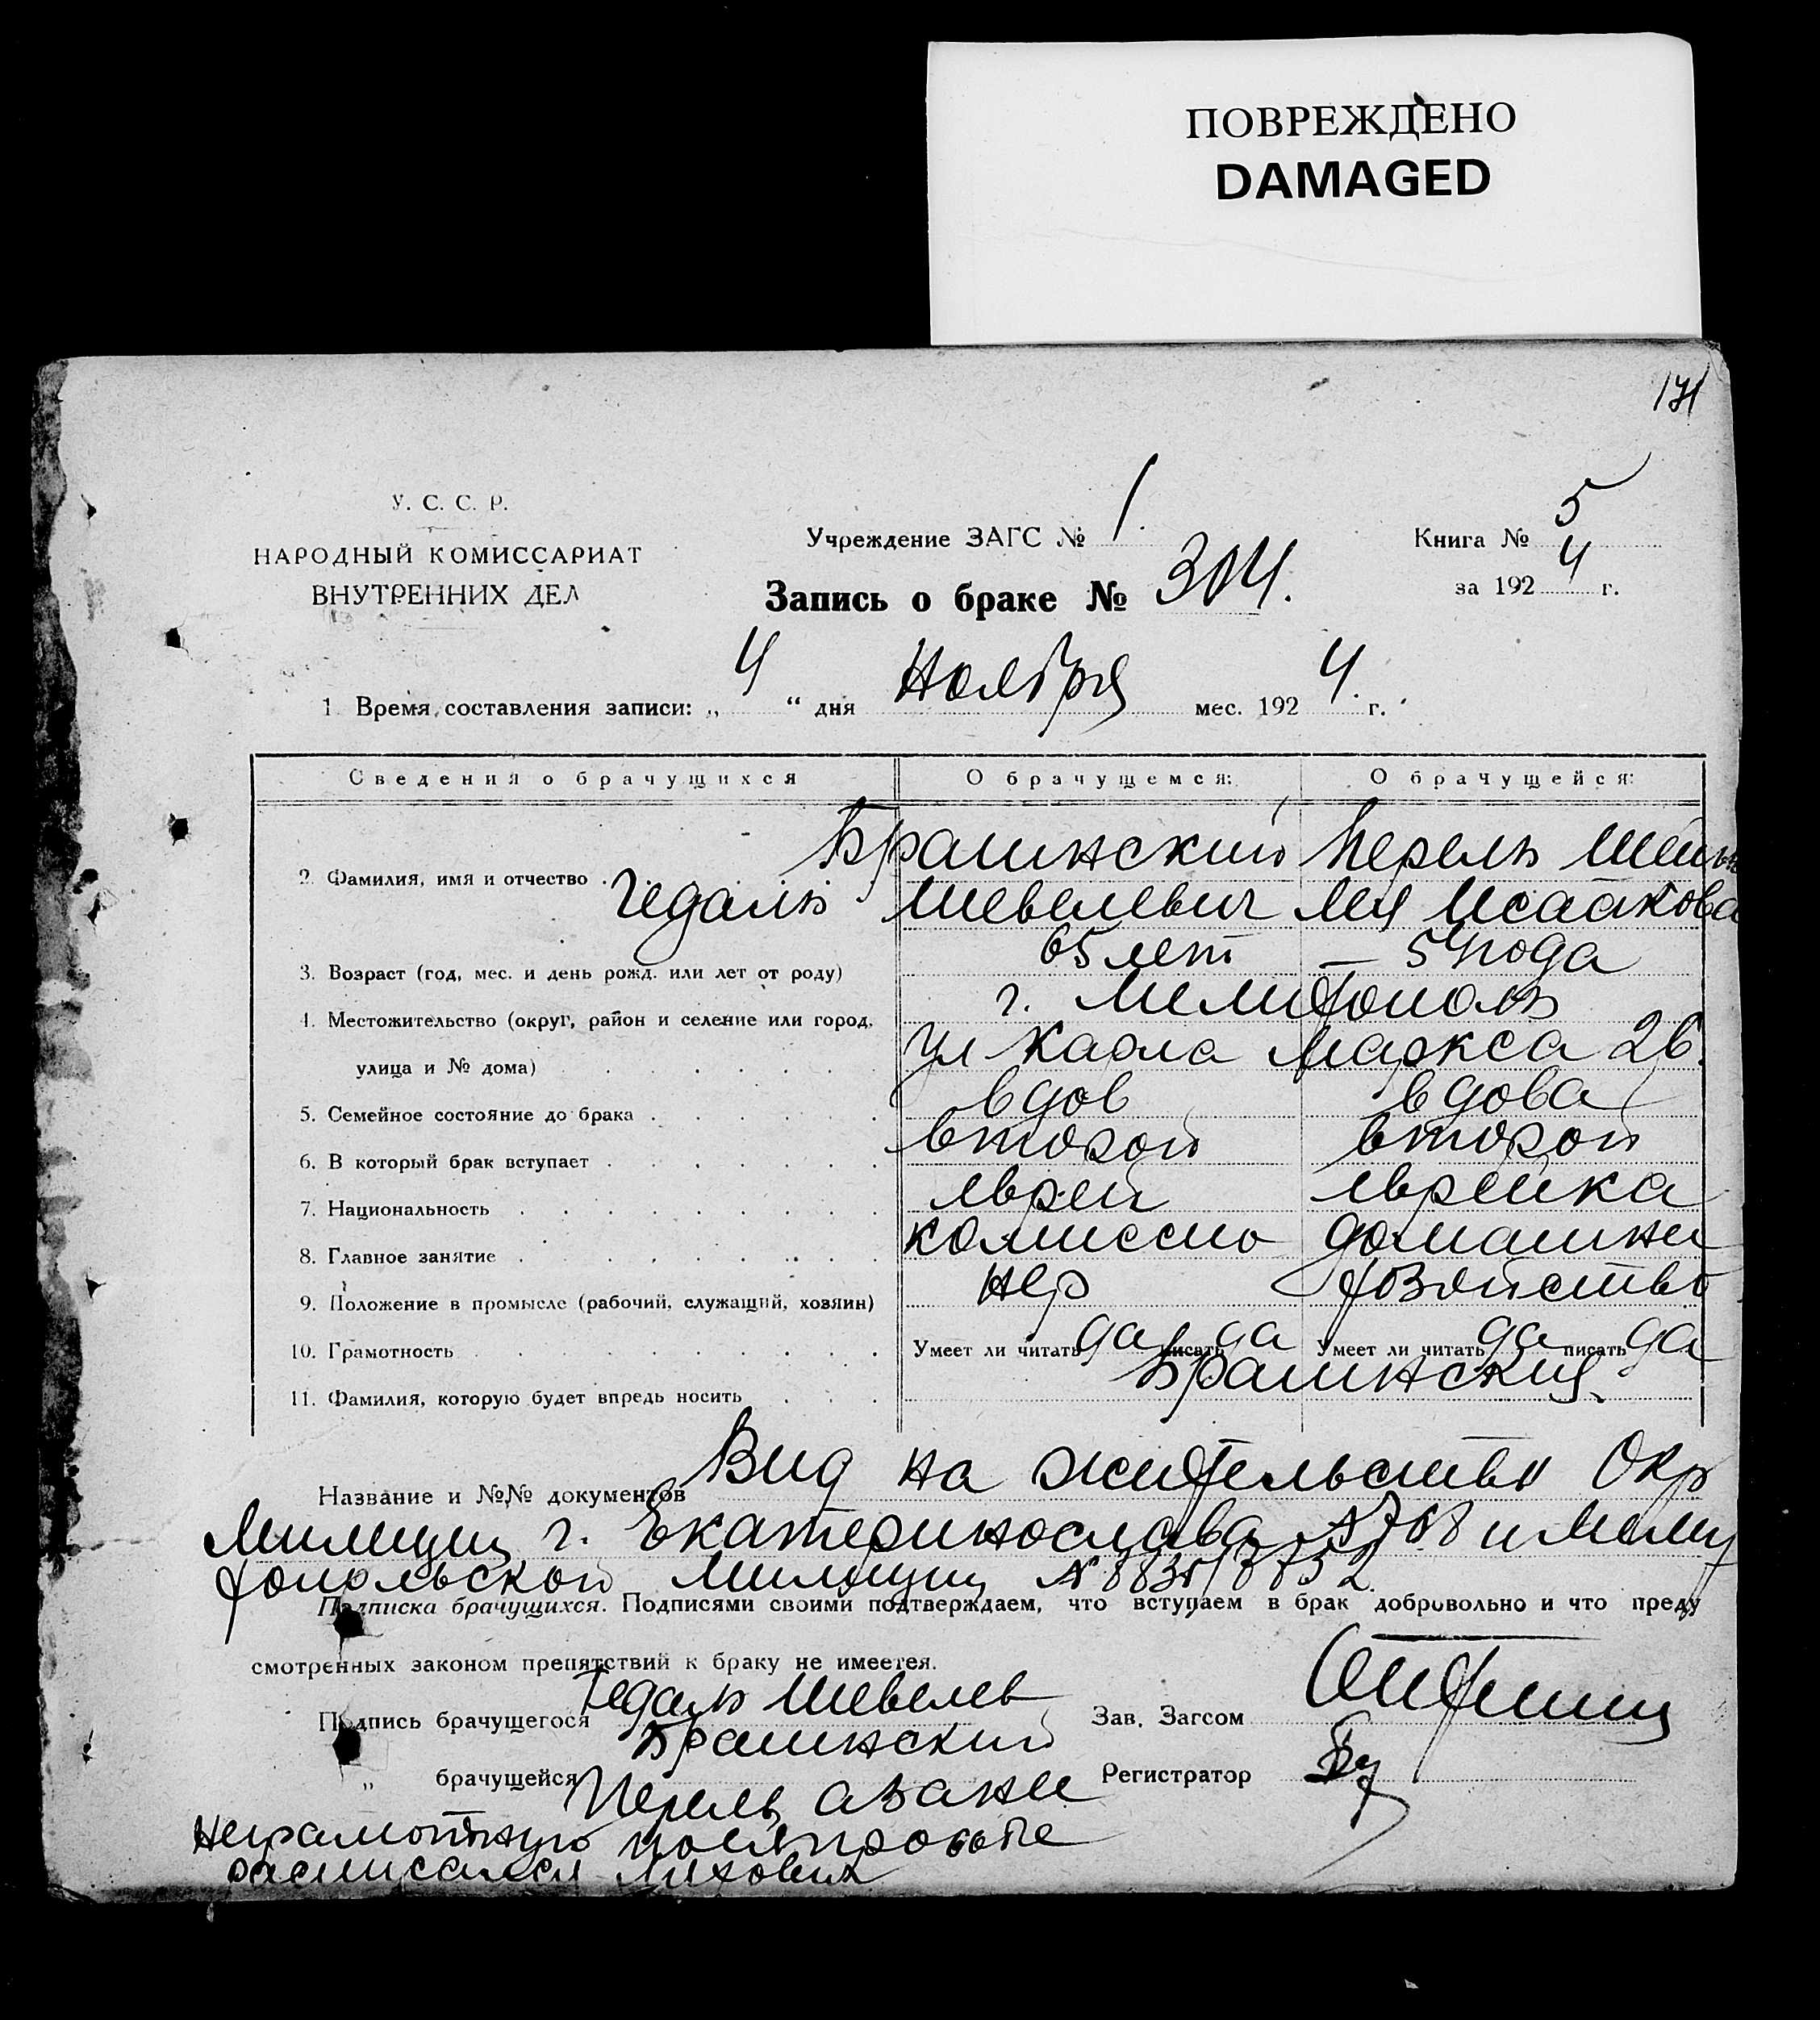 ПОВРЕЖДЕНО
DAMAGED
171
У. С. С. Р.
НАРОДНЫЙ КОМИССАРИАТ
ВНУТРЕННИХ ДЕЛ
Учреждение ЗАГС № 1
Книга № 5
за 1924 г.
Запись о браке № 304.
1. Время составления записи: „4“ дня Ноября мес. 1924 г.
Сведения о брачущихся О брачущемся: О брачущейся:
2. Фамилия, имя и отчество Брашинский Перель Шейн
Гедаль Шевелевич Лея Исааковa
3. Возраст (год, мес. и день рожд. или лет от роду) 65 лет — 54 года
4. Местожительство (округ, район и селение или город, г. Мелитополь
улица и № дома) ул Карла Маркса 26.
5. Семейное состояние до брака вдов вдова
6. В который брак вступает второй второй
7. Национальность еврей еврейка
8. Главное занятие комиссио домашнее
9. Положение в промысле (рабочий, служащий, хозяин) нер хозяйство
10. Грамотность Умеет ли читать да писать да Умеет ли читать да писать да
11. Фамилия, которую будет впредь носить Брашинския.
Название и №№ документов Вид на жительство Окр
Милиции г. Екатеринослава №768 и Мели
топольской Милиции № 8835/8752
Подписка брачущихся. Подписями своими подтверждаем, что вступаем в брак добровольно и что преду
смотренных законом препятствий к браку не имеется.
Подпись брачущегося Гедаль Шевелев
Брашинский
Зав. Загсом
„ брачущейся Перель а за нее
Регистратор
неграмотную по ея просьбе
расписался Ляхович